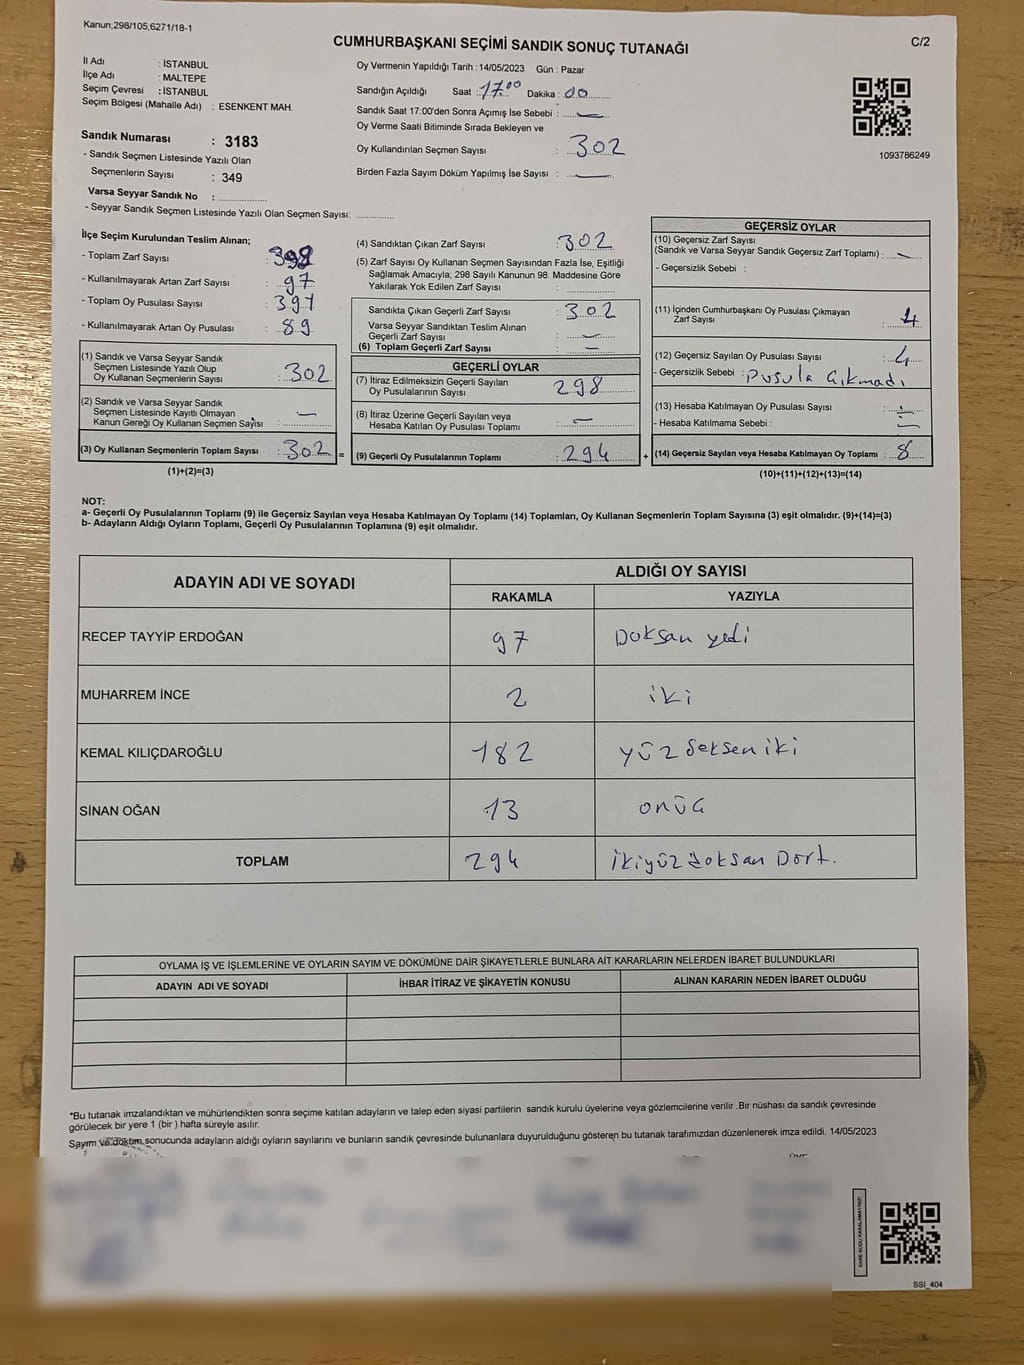 Kanun,298/105,6271/18-1
CUMHURBAŞKANI SEÇİMİ SANDIK SONUÇ TUTANAĞI
C/2
İl Adı : İSTANBUL
İlçe Adı : MALTEPE
Seçim Çevresi : İSTANBUL
Seçim Bölgesi (Mahalle Adı) : ESENKENT MAH.
Oy Vermenin Yapıldığı Tarih : 14/05/2023 Gün : Pazar
Sandığın Açıldığı Saat : 17.00 Dakika : 00
Sandık Saat 17:00'den Sonra Açımış İse Sebebi : —
Oy Verme Saati Bitiminde Sırada Bekleyen ve
Oy Kullandırılan Seçmen Sayısı : 302
Birden Fazla Sayım Döküm Yapılmış İse Sayısı : —
1093786249
Sandık Numarası : 3183
- Sandık Seçmen Listesinde Yazılı Olan
Seçmenlerin Sayısı : 349
Varsa Seyyar Sandık No : ................
- Seyyar Sandık Seçmen Listesinde Yazılı Olan Seçmen Sayısı: ............
İlçe Seçim Kurulundan Teslim Alınan;
- Toplam Zarf Sayısı : 398
- Kullanılmayarak Artan Zarf Sayısı : 97
- Toplam Oy Pusulası Sayısı : 391
- Kullanılmayarak Artan Oy Pusulası : 89
(1) Sandık ve Varsa Seyyar Sandık
Seçmen Listesinde Yazılı Olup
Oy Kullanan Seçmenlerin Sayısı : 302
(2) Sandık ve Varsa Seyyar Sandık
Seçmen Listesinde Kayıtlı Olmayan
Kanun Gereği Oy Kullanan Seçmen Sayısı : —
(3) Oy Kullanan Seçmenlerin Toplam Sayısı : 302 =
(1)+(2)=(3)
(4) Sandıktan Çıkan Zarf Sayısı : 302
(5) Zarf Sayısı Oy Kullanan Seçmen Sayısından Fazla İse, Eşitliği
Sağlamak Amacıyla; 298 Sayılı Kanunun 98. Maddesine Göre
Yakılarak Yok Edilen Zarf Sayısı : ............
Sandıkta Çıkan Geçerli Zarf Sayısı : 302
Varsa Seyyar Sandıktan Teslim Alınan
Geçerli Zarf Sayısı : —
(6) Toplam Geçerli Zarf Sayısı : —
GEÇERLİ OYLAR
(7) İtiraz Edilmeksizin Geçerli Sayılan
Oy Pusulalarının Sayısı : 298
(8) İtiraz Üzerine Geçerli Sayılan veya
Hesaba Katılan Oy Pusulaları Toplamı : —
(9) Geçerli Oy Pusulalarının Toplamı : 294 +
GEÇERSİZ OYLAR
(10) Geçersiz Zarf Sayısı
(Sandık ve Varsa Seyyar Sandık Geçersiz Zarf Toplamı) : —
- Geçersizlik Sebebi :
(11) İçinden Cumhurbaşkanı Oy Pusulası Çıkmayan
Zarf Sayısı : 4
(12) Geçersiz Sayılan Oy Pusulası Sayısı : 4
- Geçersizlik Sebebi : Pusula Çıkmadı
(13) Hesaba Katılmayan Oy Pusulası Sayısı : —
- Hesaba Katılmama Sebebi : —
(14) Geçersiz Sayılan veya Hesaba Katılmayan Oy Toplamı : 8
(10)+(11)+(12)+(13)=(14)
NOT:
a- Geçerli Oy Pusulalarının Toplamı (9) ile Geçersiz Sayılan veya Hesaba Katılmayan Oy Toplamı (14) Toplamları, Oy Kullanan Seçmenlerin Toplam Sayısına (3) eşit olmalıdır. (9)+(14)=(3)
b- Adayların Aldığı Oyların Toplamı, Geçerli Oy Pusulalarının Toplamına (9) eşit olmalıdır.
ADAYIN ADI VE SOYADI
ALDIĞI OY SAYISI
RAKAMLA YAZIYLA
RECEP TAYYİP ERDOĞAN 97 Doksan yedi
MUHARREM İNCE 2 iki
KEMAL KILIÇDAROĞLU 182 yüz seksen iki
SİNAN OĞAN 13 onüç
TOPLAM 294 ikiyüz doksan Dört.
OYLAMA İŞ VE İŞLEMLERİNE VE OYLARIN SAYIM VE DÖKÜMÜNE DAİR ŞİKAYETLERLE BUNLARA AİT KARARLARIN NELERDEN İBARET BULUNDUKLARI
ADAYIN ADI VE SOYADI İHBAR İTİRAZ VE ŞİKAYETİN KONUSU ALINAN KARARIN NEDEN İBARET OLDUĞU
*Bu tutanak imzalandıktan ve mühürlendikten sonra seçime katılan adayların ve talep eden siyasi partilerin sandık kurulu üyelerine veya gözlemcilerine verilir .Bir nüshası da sandık çevresinde
görülecek bir yere 1 (bir ) hafta süreyle asılır.
Sayım ve döküm sonucunda adayların aldığı oyların sayılarını ve bunların sandık çevresinde bulunanlara duyurulduğunu gösteren bu tutanak tarafımızdan düzenlenerek imza edildi. 14/05/2023
KARE KODU KARALAMAYINIZ!
SSI_404